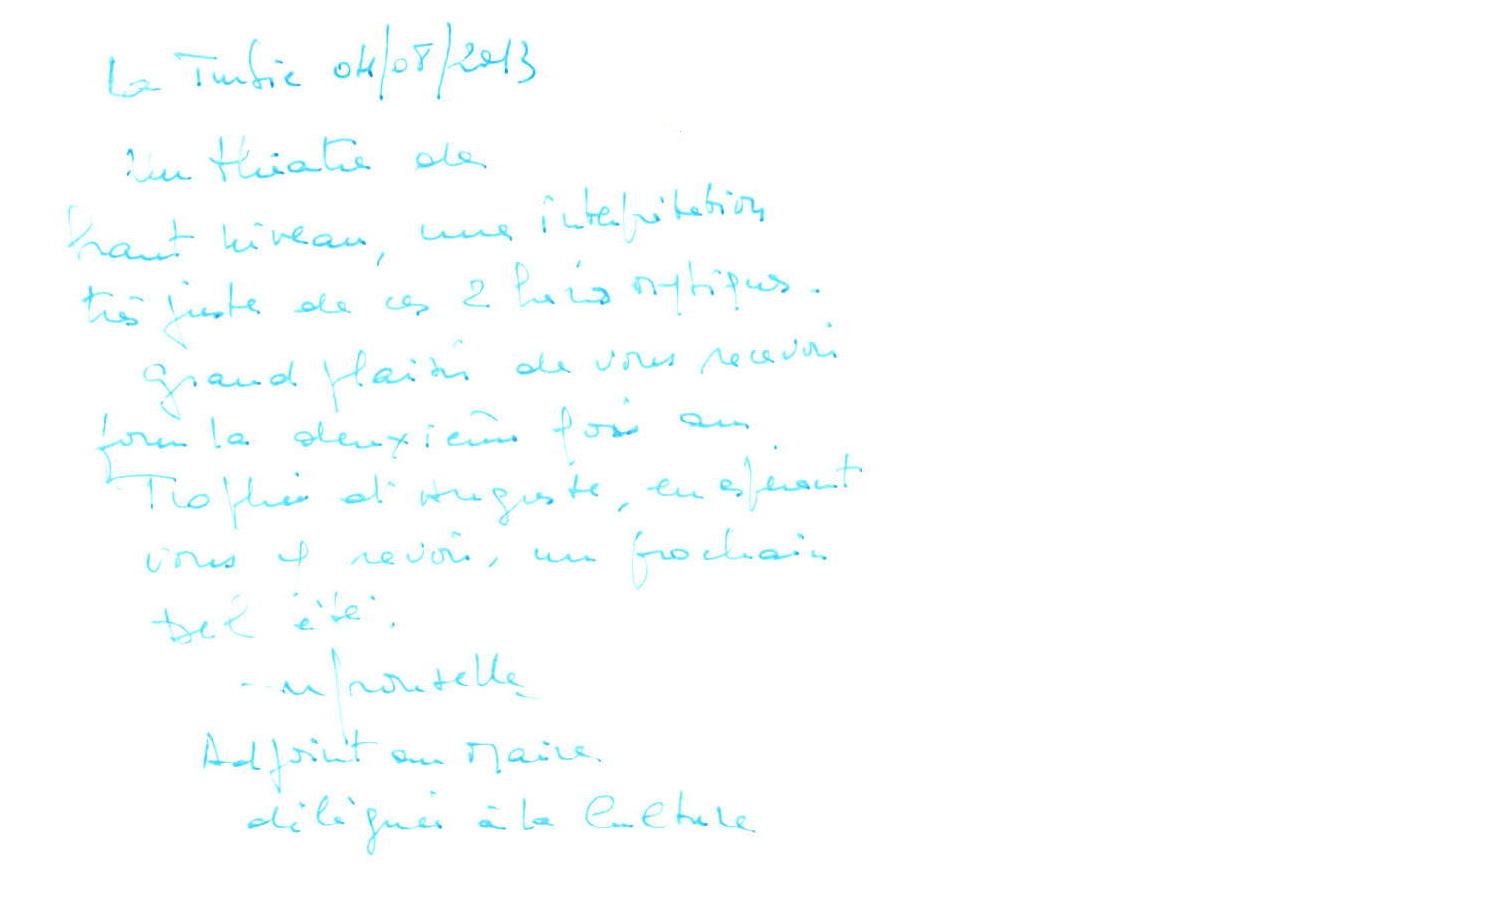 La Turbie 04/08/2013
Un théâtre de
haut niveau, une interprétation
très juste de ces 2 héros mythiques.
Grand plaisir de vous recevoir
pour la deuxième fois au
Trophée d'Auguste, en espérant
vous y revoir, un prochain
bel été.
Adjoint au Maire
déléguée à la Culture